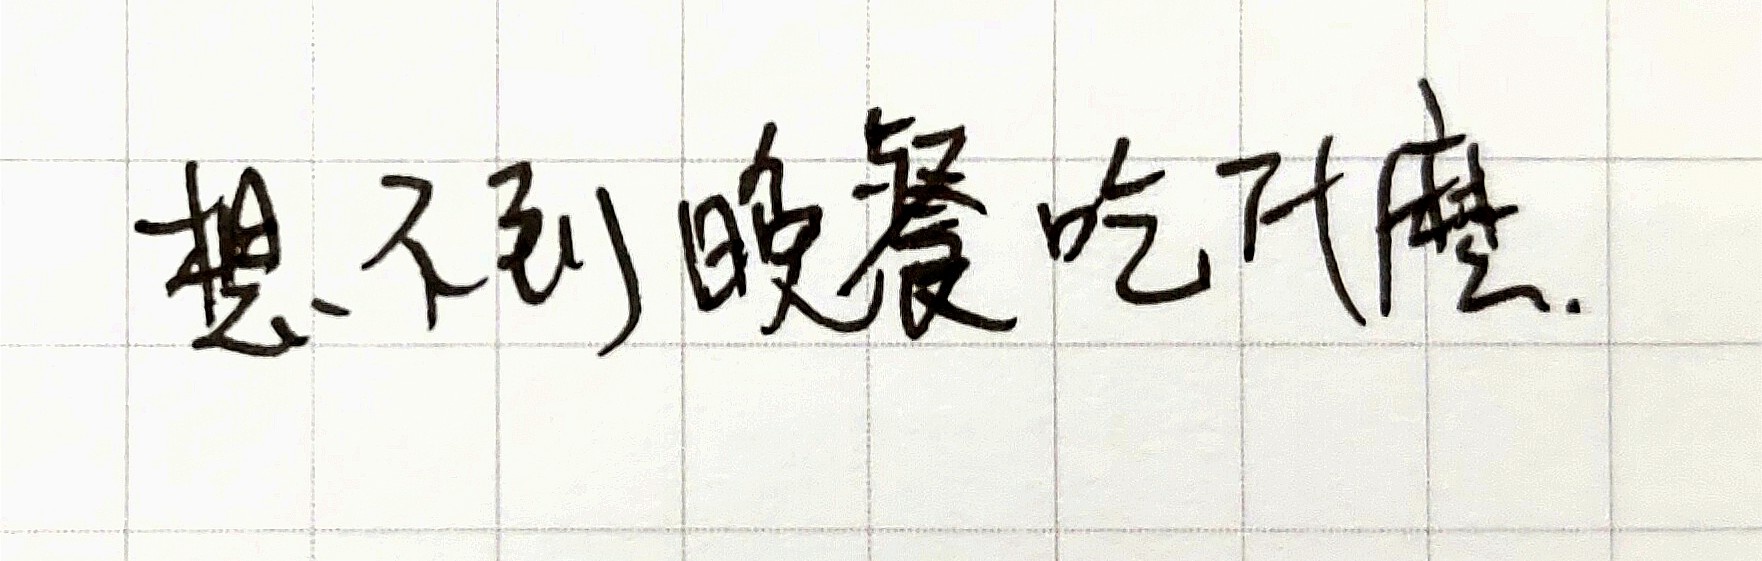 想不到晚餐吃什麼.